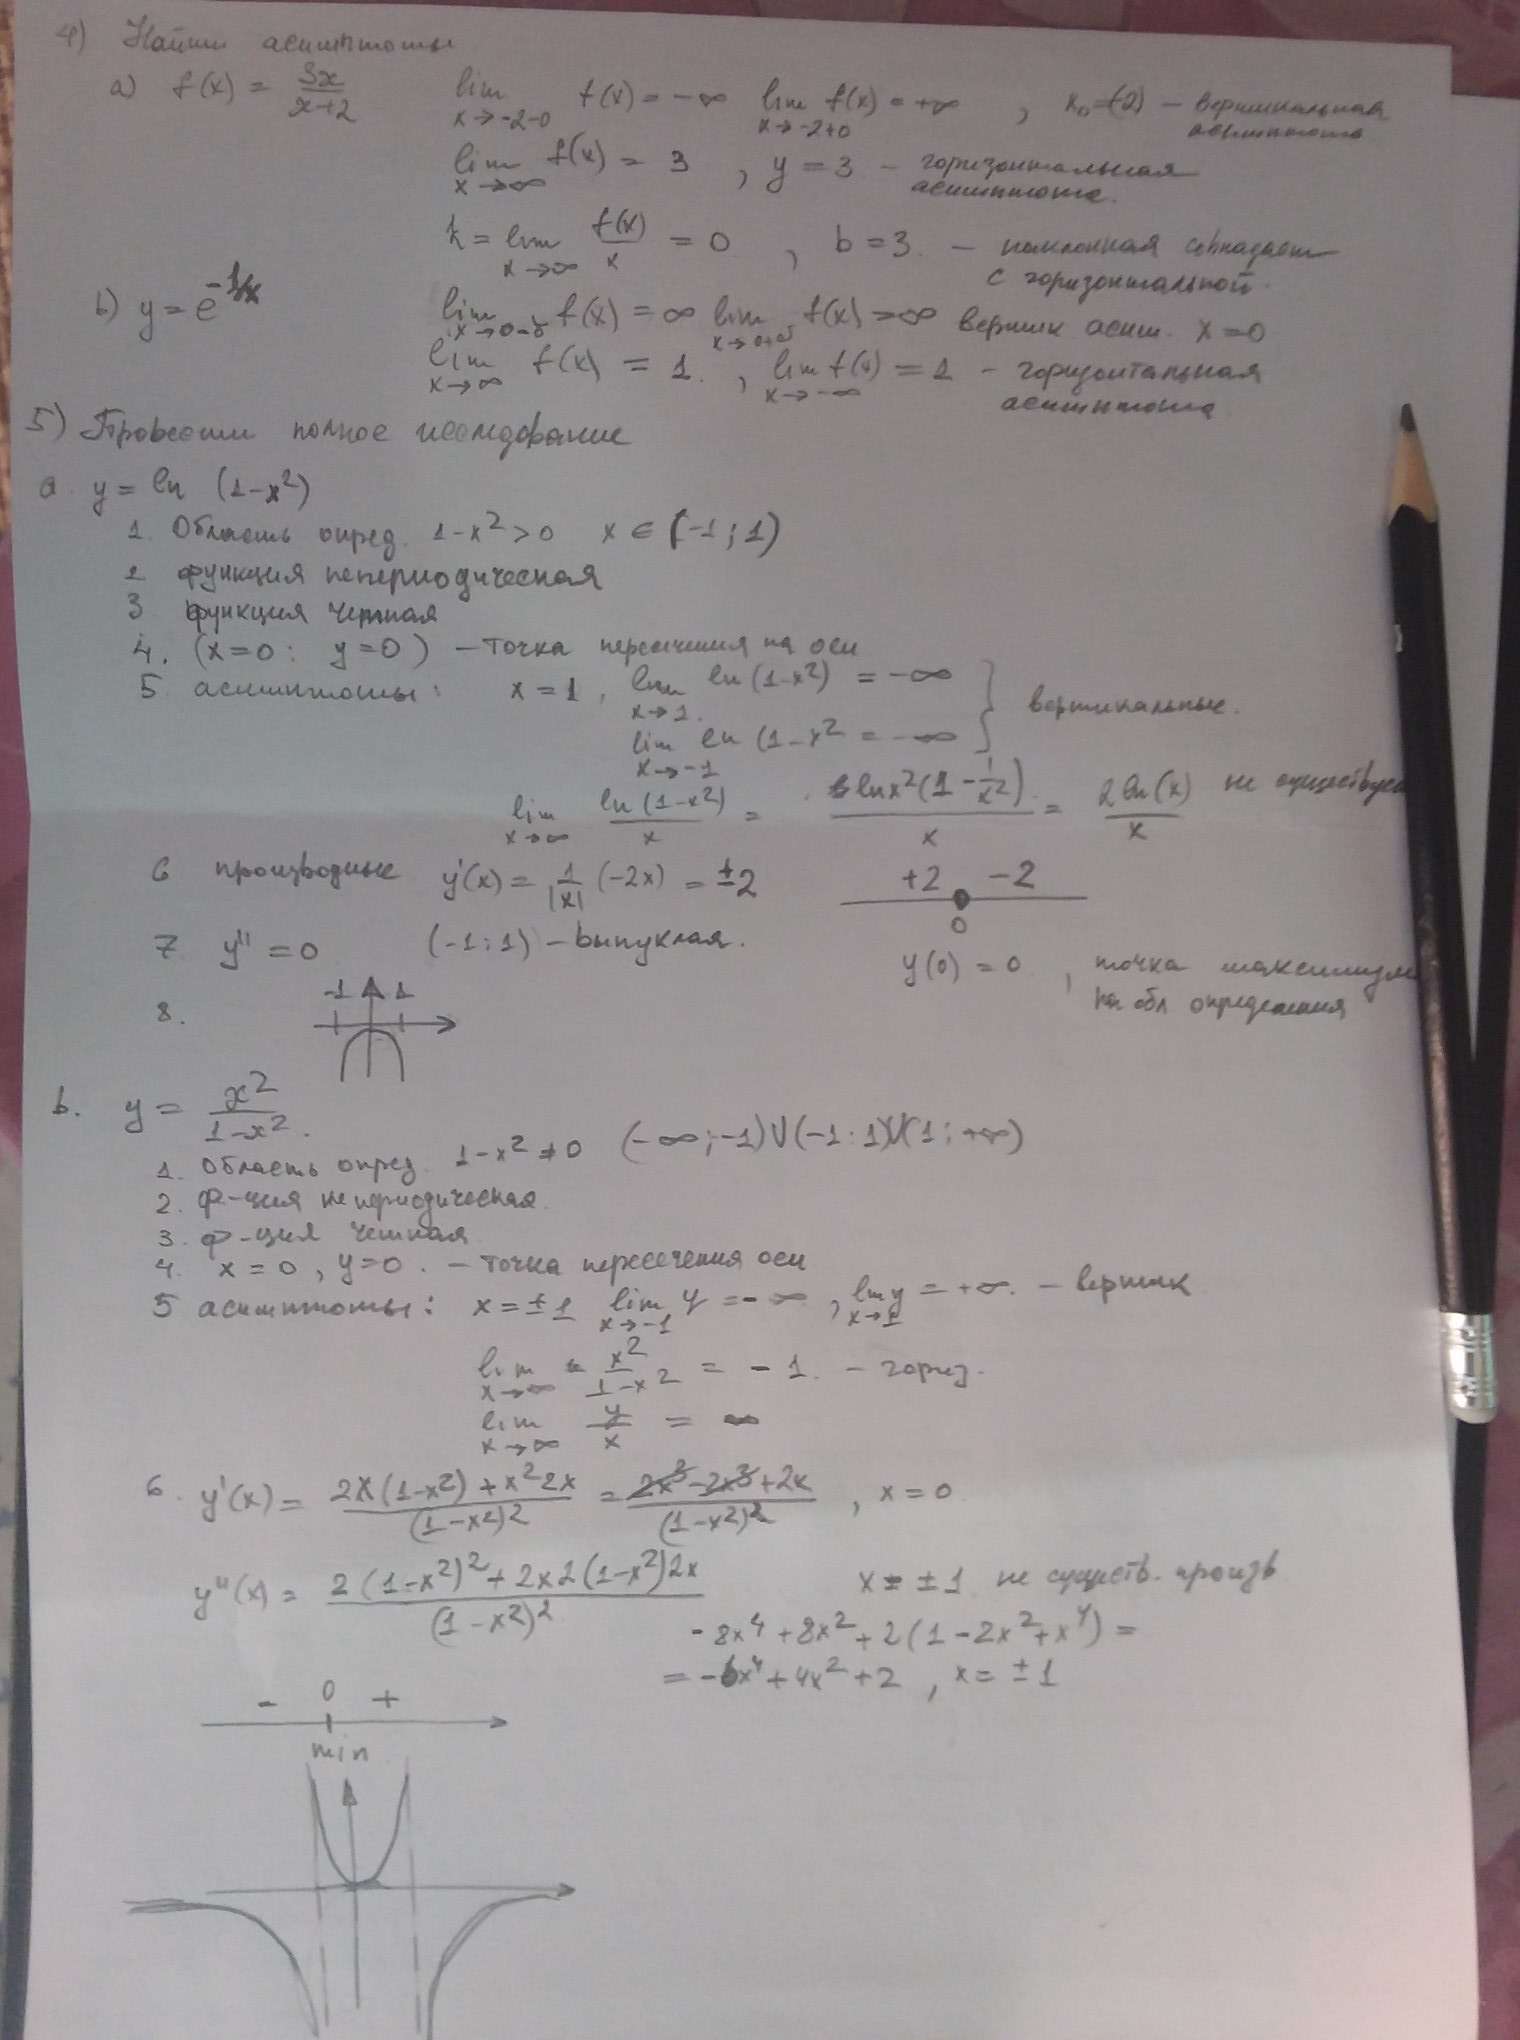 4) Найти асимптоты
a) f(x) = 3x/(x+2) lim x→-2-0 f(x) = -∞ lim x→-2+0 f(x) = +∞ , x₀=(-2) - вертикальная асимптота
lim x→∞ f(x) = 3 , y = 3 - горизонтальная асимптота.
k = lim x→∞ f(x)/x = 0 , b = 3. - наклонная совпадает
с горизонтальной.
b) y = e^(-1/x) lim x→0-0 f(x) = ∞ lim x→0+0 f(x) = ∞ вертик асим. x = 0
lim x→∞ f(x) = 1. , lim x→-∞ f(x) = 1 - горизонтальная
асимптота
5) Провести полное исследование
a. y = ln (1-x²)
1. Область опред. 1-x² > 0 x ∈ (-1; 1)
2 функция непериодическая
3 функция четная
4. (x=0: y=0) - точка пересечения на оси
5 асимптоты: x = 1, lim x→1. ln(1-x²) = -∞ } вертикальные.
lim x→-1 ln(1-x² = -∞
lim x→∞ ln(1-x²)/x = lnx²(1-1/x²)/x = 2ln(x)/x не существуе
6 производные y'(x) = 1/|x| (-2x) = ±2 +2 -2
0
7 y'' = 0 (-1; 1) - выпуклая. y(0) = 0 , точка максимум
на обл определения
8. -1 1
b. y = x²/(1-x²).
1. Область опред. 1-x² ≠ 0 (-∞; -1)∪(-1: 1)∪(1; +∞)
2. ф-ция непериодическая.
3. ф-ция четная
4. x = 0, y=0. - точка пересечения оси
5 асимптоты: x = ±1 lim x→-1 y = -∞ , lim x→1 y = +∞. - вертик
lim x→∞ x²/(1-x²) = -1. - гориз.
lim x→∞ y/x = ∞
6. y'(x) = (2x(1-x²) + x²2x)/(1-x²)² = (2x³-2x³+2x)/(1-x²)² , x = 0
y''(x) = (2(1-x²)² + 2x2(1-x²)2x)/(1-x²)² x = ±1 не существ. произв
-8x⁴ + 8x² + 2(1-2x²+x⁴) =
= -6x⁴ + 4x² + 2 , x = ±1
- 0 +
min